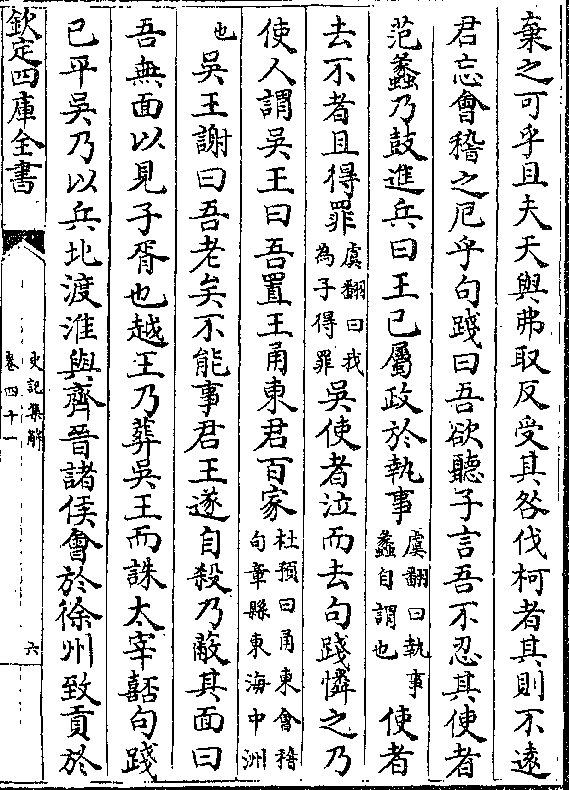 棄之可乎且夫天與弗取反受其咎伐柯者其則不遠
君忘會稽之厄乎句踐曰吾欲聽子言吾不忍其使者
范蠡乃鼓進兵曰王已屬政於執事虞翻曰執事蠡自謂也使者
去不者且得罪虞翻曰我為子得罪吳使者泣而去句踐憐之乃
使人謂吳王曰吾置王甬東君百家杜預曰甬東會稽句章縣東海中洲
也吳王謝曰吾老矣不能事君王遂自殺乃蔽其面曰
吾無面以見子胥也越王乃葬吳王而誅太宰嚭句踐
已平吳乃以兵北渡淮與齊晉諸侯會於徐州致貢於
欽定四庫全書
史記集解
卷四十一
六